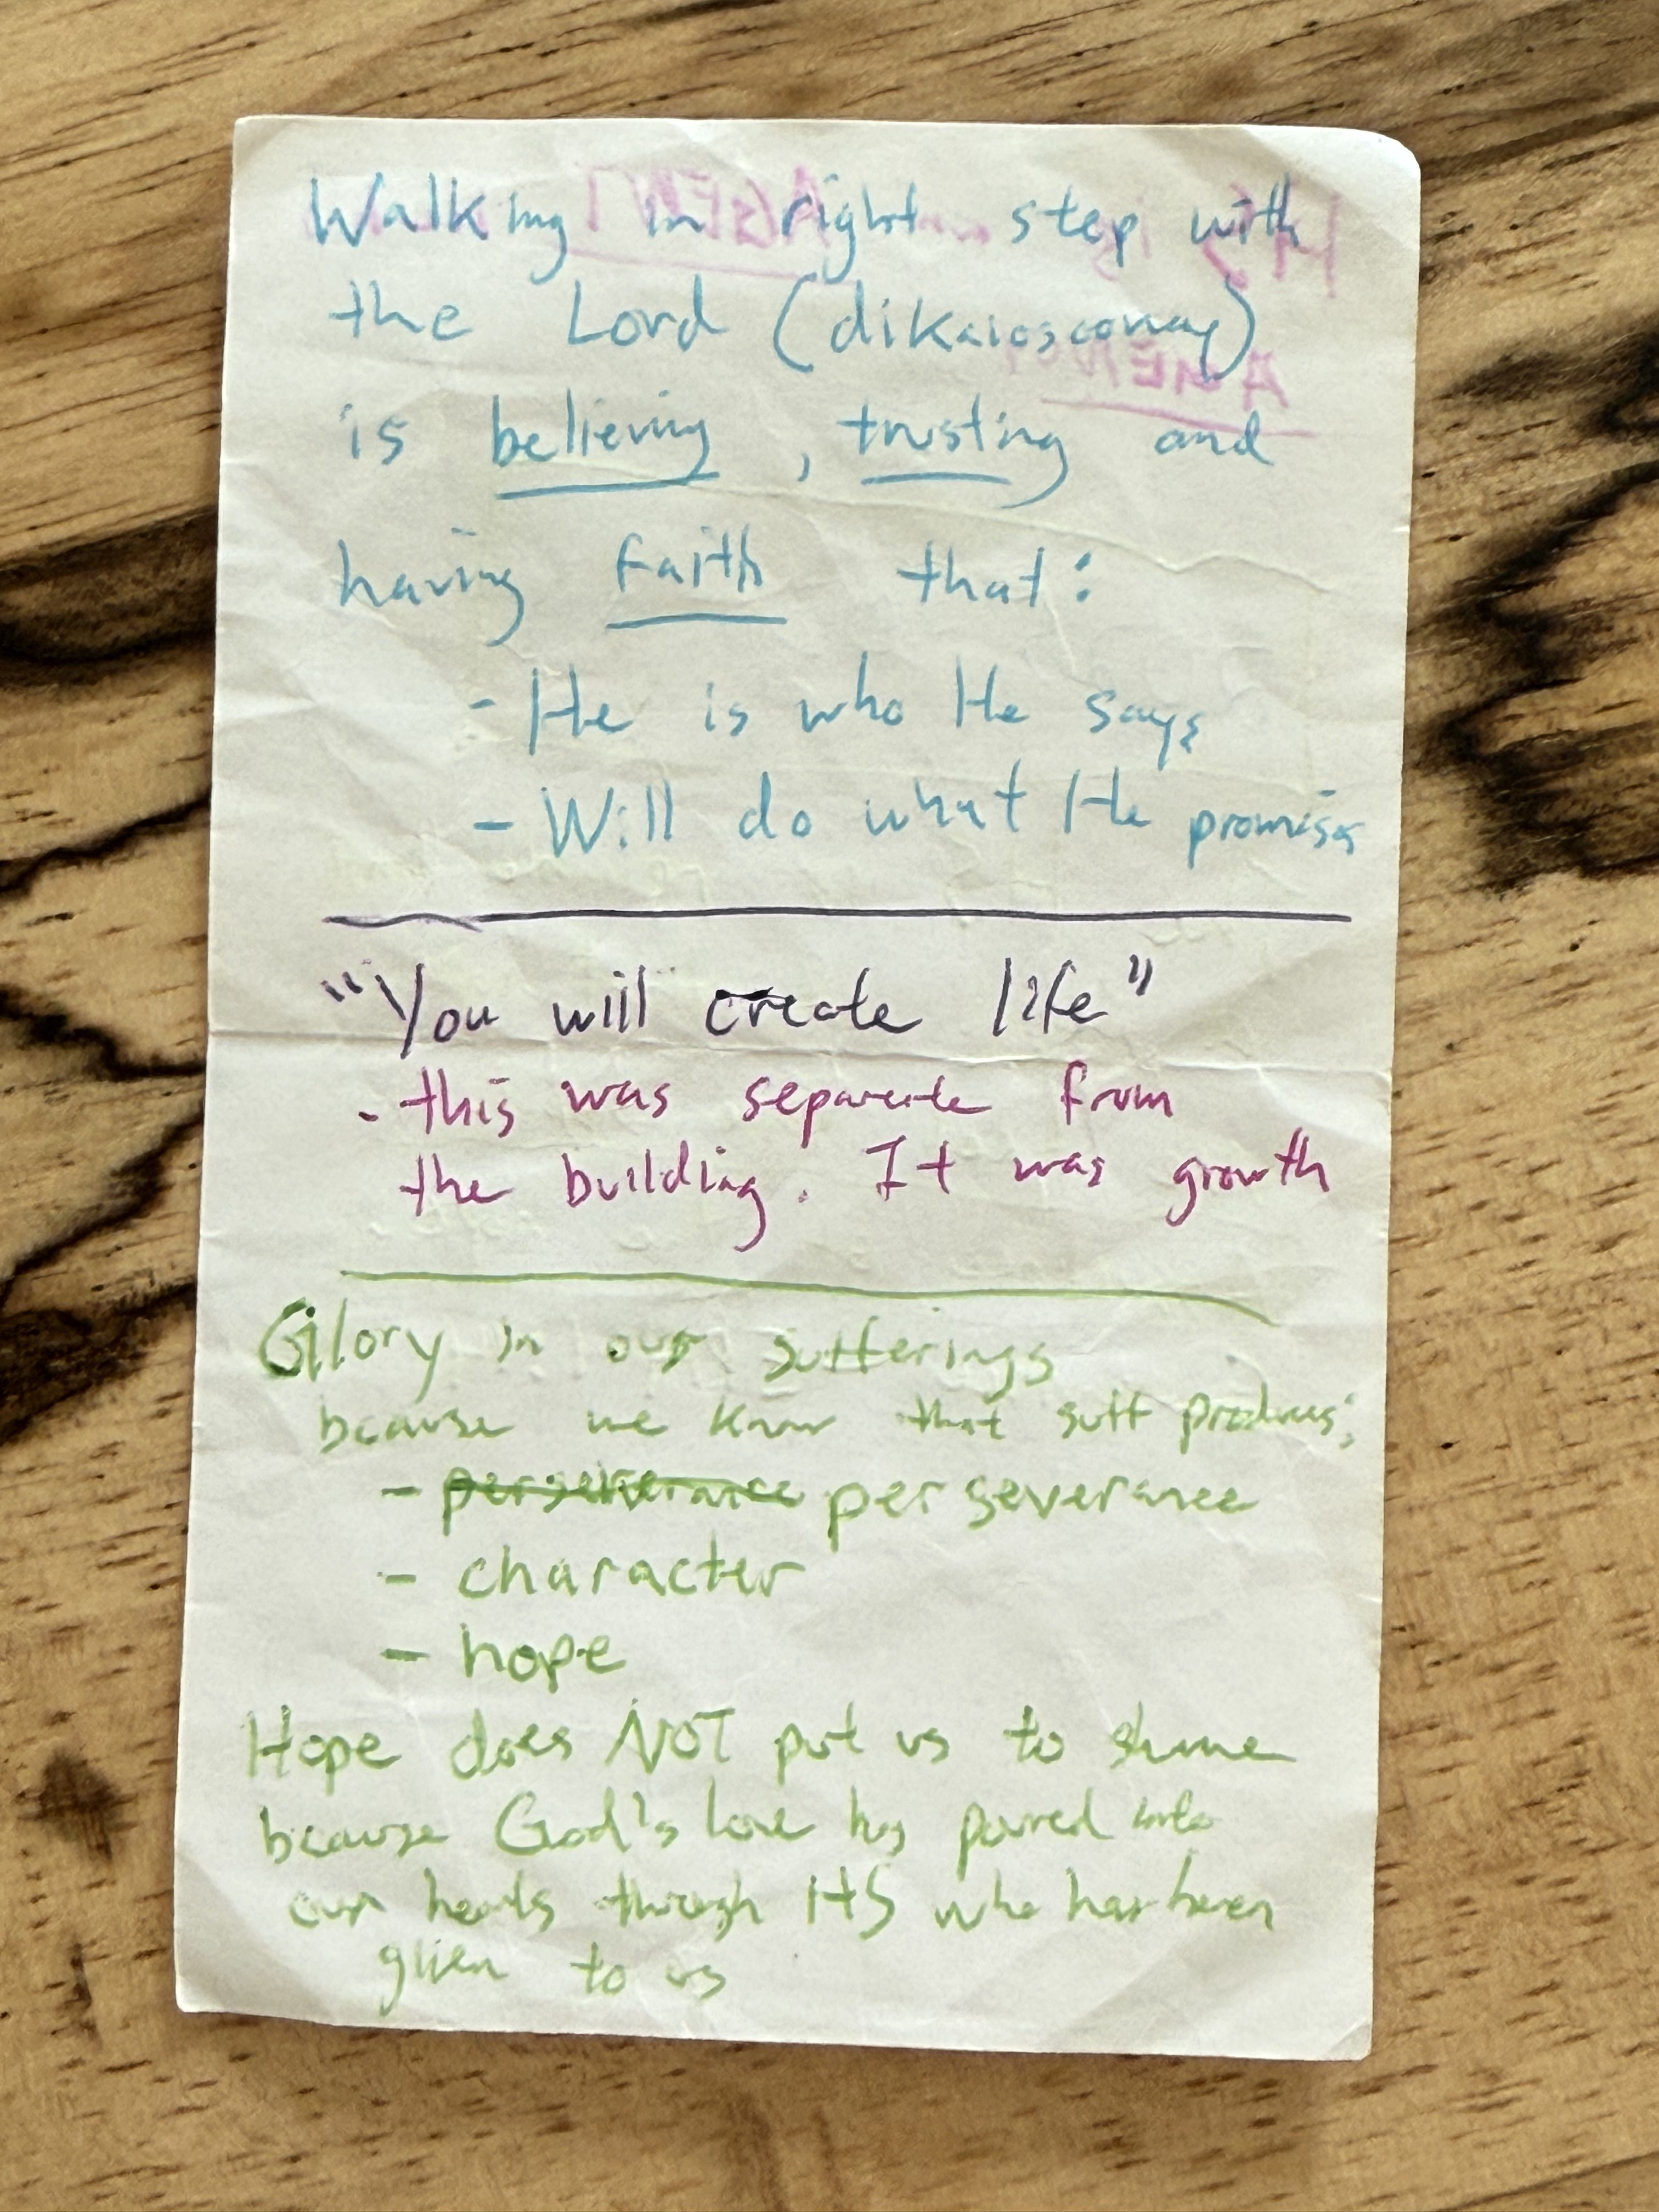 Walking in right step with
the Lord (dikaiosconay)
is believing, trusting and
having faith that:
- He is who He says
- Will do what He promises
"You will create life"
- this was separate from
the building. It was growth
Glory in our sufferings
because we know that suff produces:
- perseverance perseverance
- character
- hope
Hope does NOT put us to shame
because God's love has poured into
our hearts through HS who has been
given to us